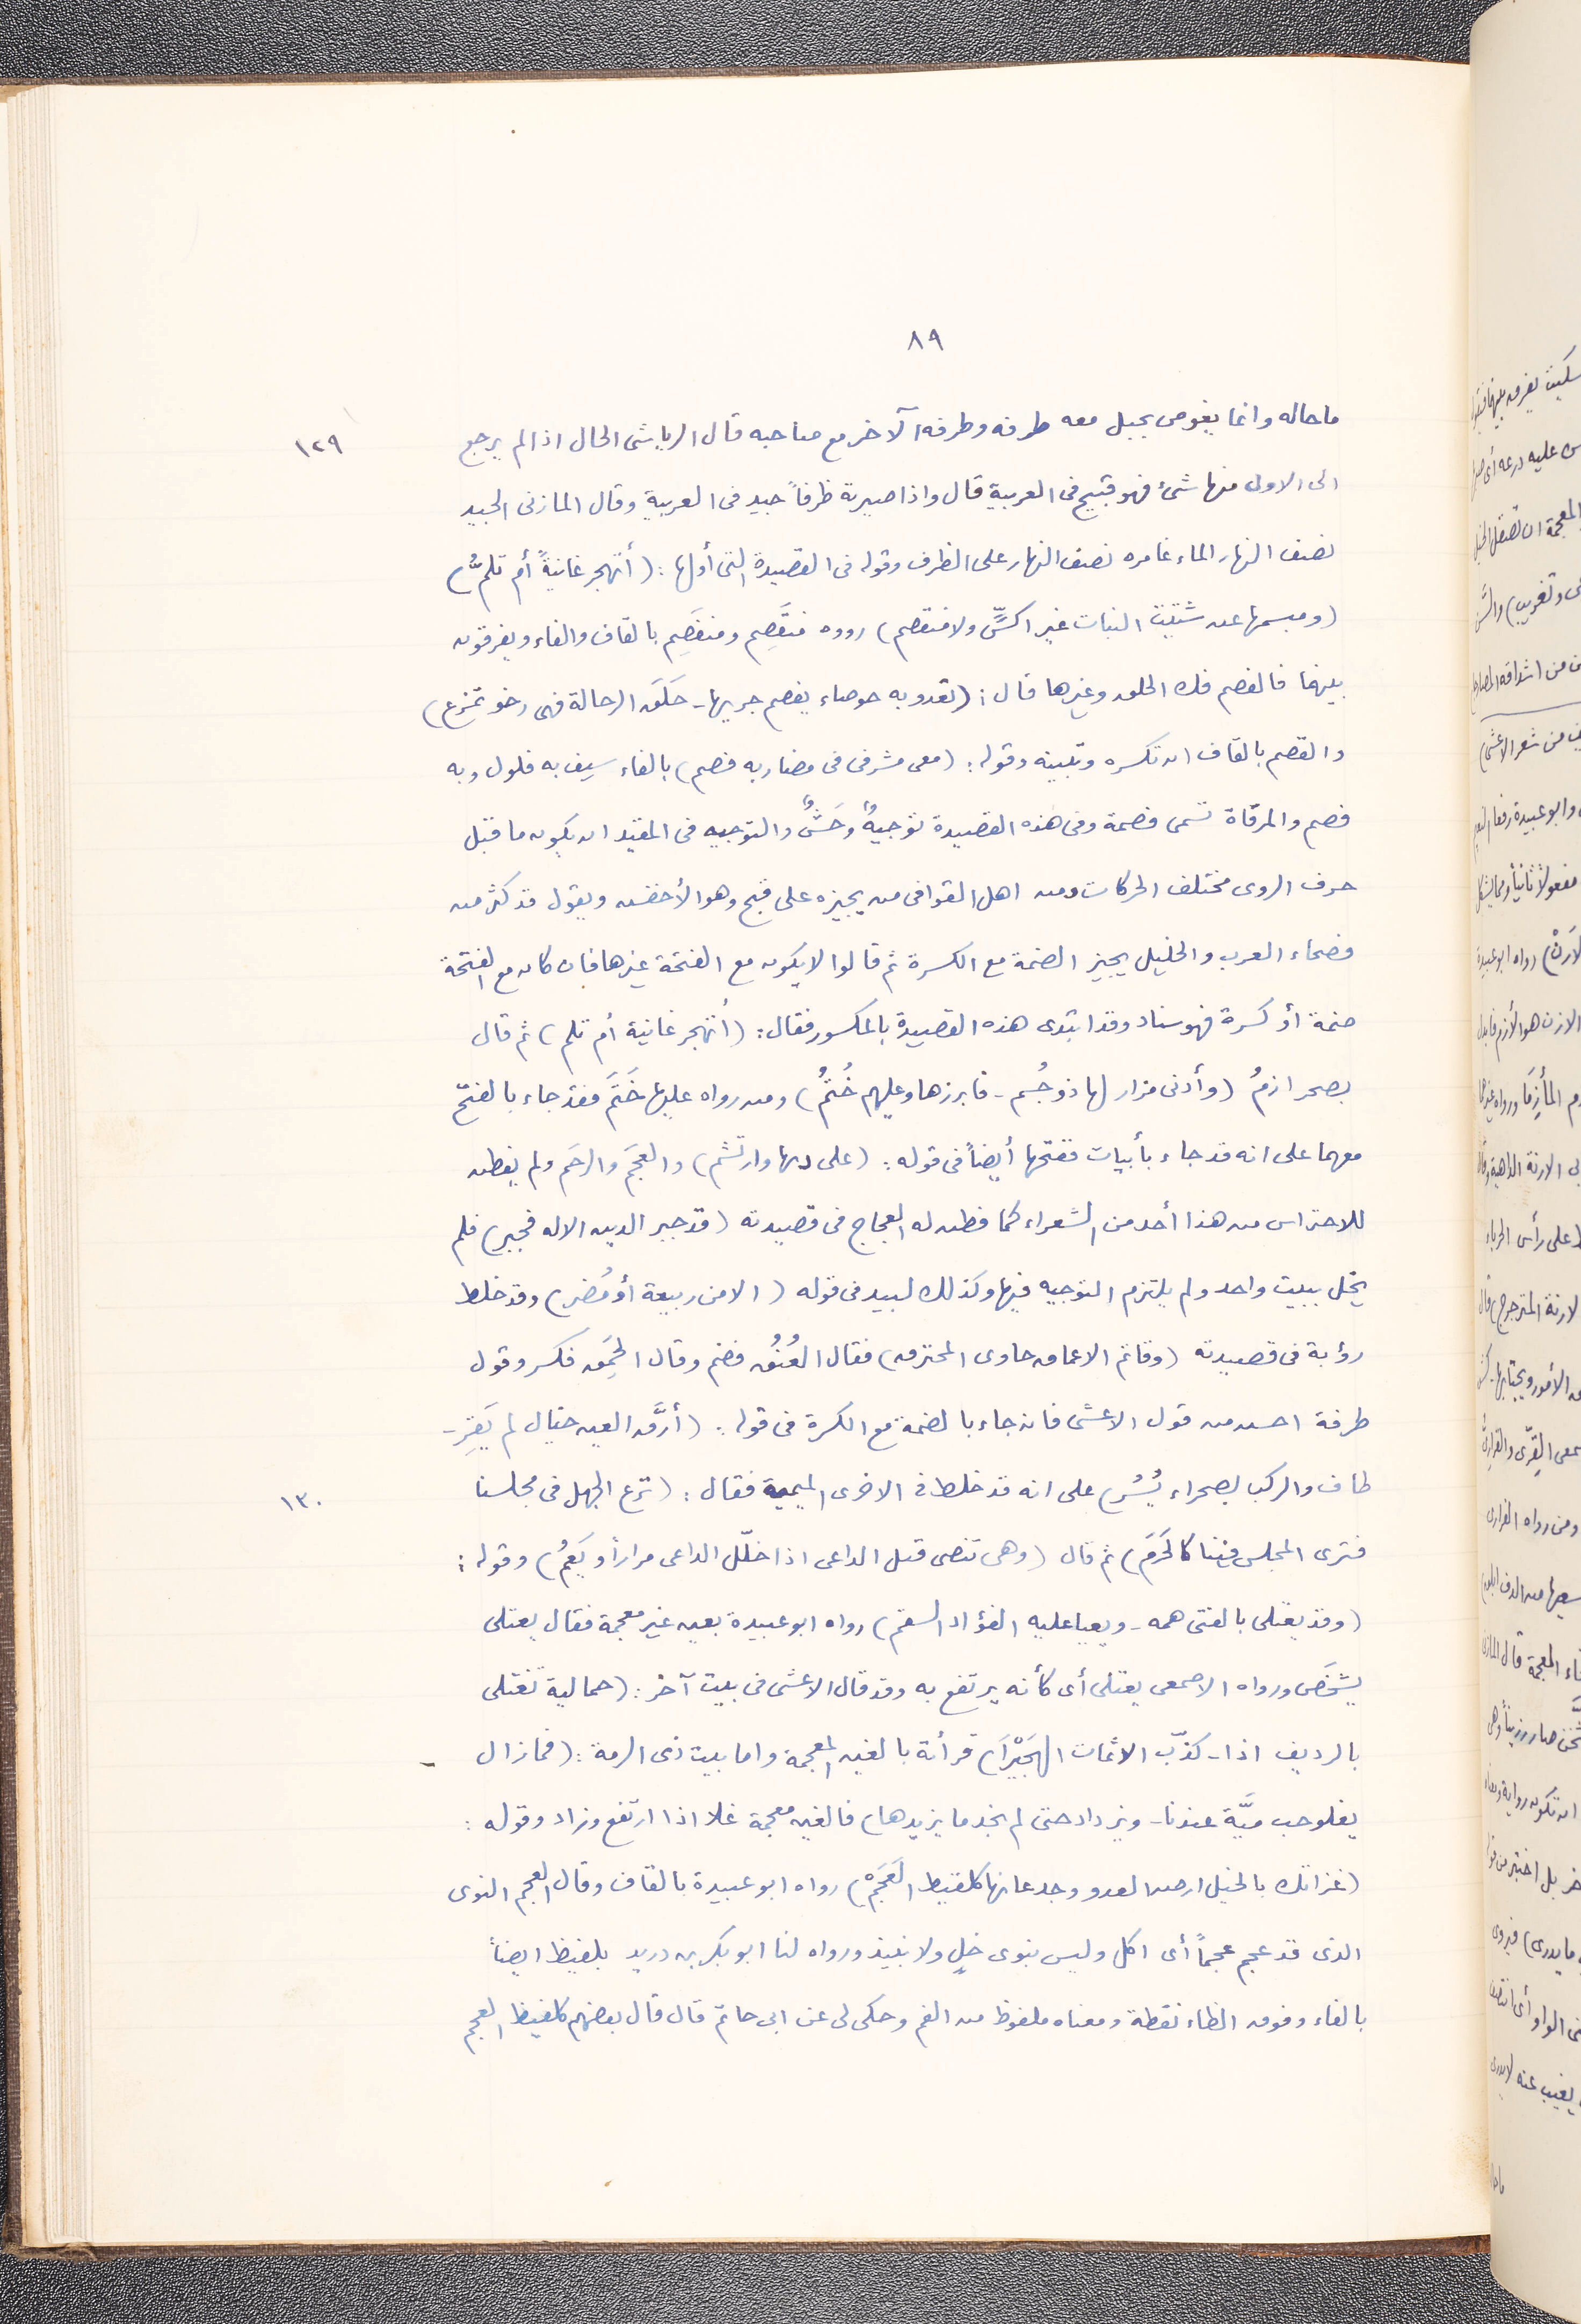 ٨٩
ما حاله وانما يغوص بحبل معه طرفه وطرفه الآخر مع صاحبه قال الرياشى الحال اذا لم يرجع
١٢٩
الى الاول منها شئ فهو قبيح فى العربية قال واذا صيرته ظرفاً جيد فى العربية وقال المازنى الجيد
نصف النهار الماء غامره نصف النهار على الظرف وقوله فى القصيدة التى أولها: (أتهجر غانيةً أم تلمُّ)
(ومبسمها عن شتيت النبات غير اكسٍّ ولا منقصم) رووه منقَصِم ومنفَصِم بالقاف والفاء ويفرقون
بينهما فالفصم فك الحلق وغيرها قال: (تعدو به خوصاء يفصم جريها - حَلَق الرحالة فهى رخو تمزع)
والقصم بالقاف ان تكسره وتبينه وقوله: (معى مشرفى فى مضاربه فصم) بالفاء سيف به فلول وبه
فصم والمرقاة تسمى فصمة وفى هذه القصيدة توجيهٌ وحَشْوٌ والتوجيه فى المقيد ان يكون ما قبل
حرف الروى مختلف الحركات ومن اهل القوافى من يجيزه على قبح وهو الأخفش ويقول قد كثر من
فصحاء العرب والخليل يجيز الضمة مع الكسرة ثم قالوا لا يكون مع الفتحة غيرها فان كان مع الفتحة
ضمة أو كسرة فهو سناد وقد ابتدى هذه القصيدة بالمكسور فقال: (أتهجر غانية أم تلم) ثم قال
بصحر ازمُ (وأدنى مزار لها ذو حُسُم - فابرزها وعليهم خُتُمُ) ومن رواه عليها خَتَمَ فقد جاء بالفتح
معهما على انه قد جاء بأبيات ففتحها أيضاً فى قوله: (على دنها وارتشم) والعجَم والرخَم ولم يفطن
للاحتراس من هذا أحد من الشعراء كما فطن له العجاج فى قصيدته (قد جبر الدين الاله فجبر) فلم
يخل ببيت واحد ولم يلتزم التوجيه فيها وكذلك لبيد فى قوله (الا من ربيعة أو مُضر) وقد خلط
رؤبة فى قصيدته (وقاتم الاعماق حاوى المخترق) فقال العُنُق فضم وقال الحَمِق فكسر وقول
طرفة احسن من قول الاعشى فانه جاء بالضمة مع الكسرة فى قوله: (أرَّق العين خيال لم يَقِر -
طاف والركب بصحراء يُسُر) على انه قد خلط فى الاخرى الميمية فقال: (نزع الجهل فى مجلسنا
١٣٠
فترى المجلس فينا كالحَرَم) ثم قال (وهى تنصى قبل الداعى اذا خلّل الداعى مراراً ويَعُم) وقوله:
(وقد يغتلى بالفتى همه - ويعيا عليه الفؤاد السقم) رواه ابو عبيدة بعين غير معجمة فقال يعتلى
يشخَص ورواه الاصمعى يغتلى أى كأنه يرتفع به وقد قال الاعشى فى بيت آخر: (جمالية تغتلى
بالرديف اذا - كذّب الاثمات الهَجِيْرَا) قرأته بالغين المعجمة واما بيت ذى الرمة: (فما زال -
يغلو حب ميَّة عندنا - ويزداد حتى لم نجد ما يزيدها) فالغين معجمة غلا اذا ارتفع وزاد وقوله:
(غزاتك بالخيل ارض العدو وجدعانها كلقيط العَجَمْ) رواه ابو عبيدة بالقاف وقال العجم النوى
الذى قد عجم عجماً أى اكل وليس بنوى خلٍ ولا نبيذ ورواه لنا ابو بكر بن دريد بلفيظ ايضاً
بالفاء وفوق الظاء نقطة ومعناه ملفوظ من الفم وحكى لى عن ابى حاتم قال قال بعضهم كلفيظ العجم